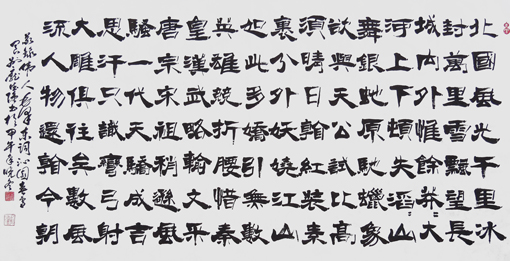 北國風光千里冰
封萬里雪飄望長
城内外惟餘莽〻大
河上下頓失滔〻山
舞銀蛇原馳蠟象
欲與天公試比高
須晴日看紅裝素
裹分外妖嬈江山
如此多嬌引無數
英雄競折腰惜秦
皇漢武略輸文采
唐宗宋祖稍遜風
騷一代天驕成吉
思汗只識彎弓射
大雕俱往矣數風
流人物還看今朝
錄偉人毛澤東詞沁園春雪
於甲午年